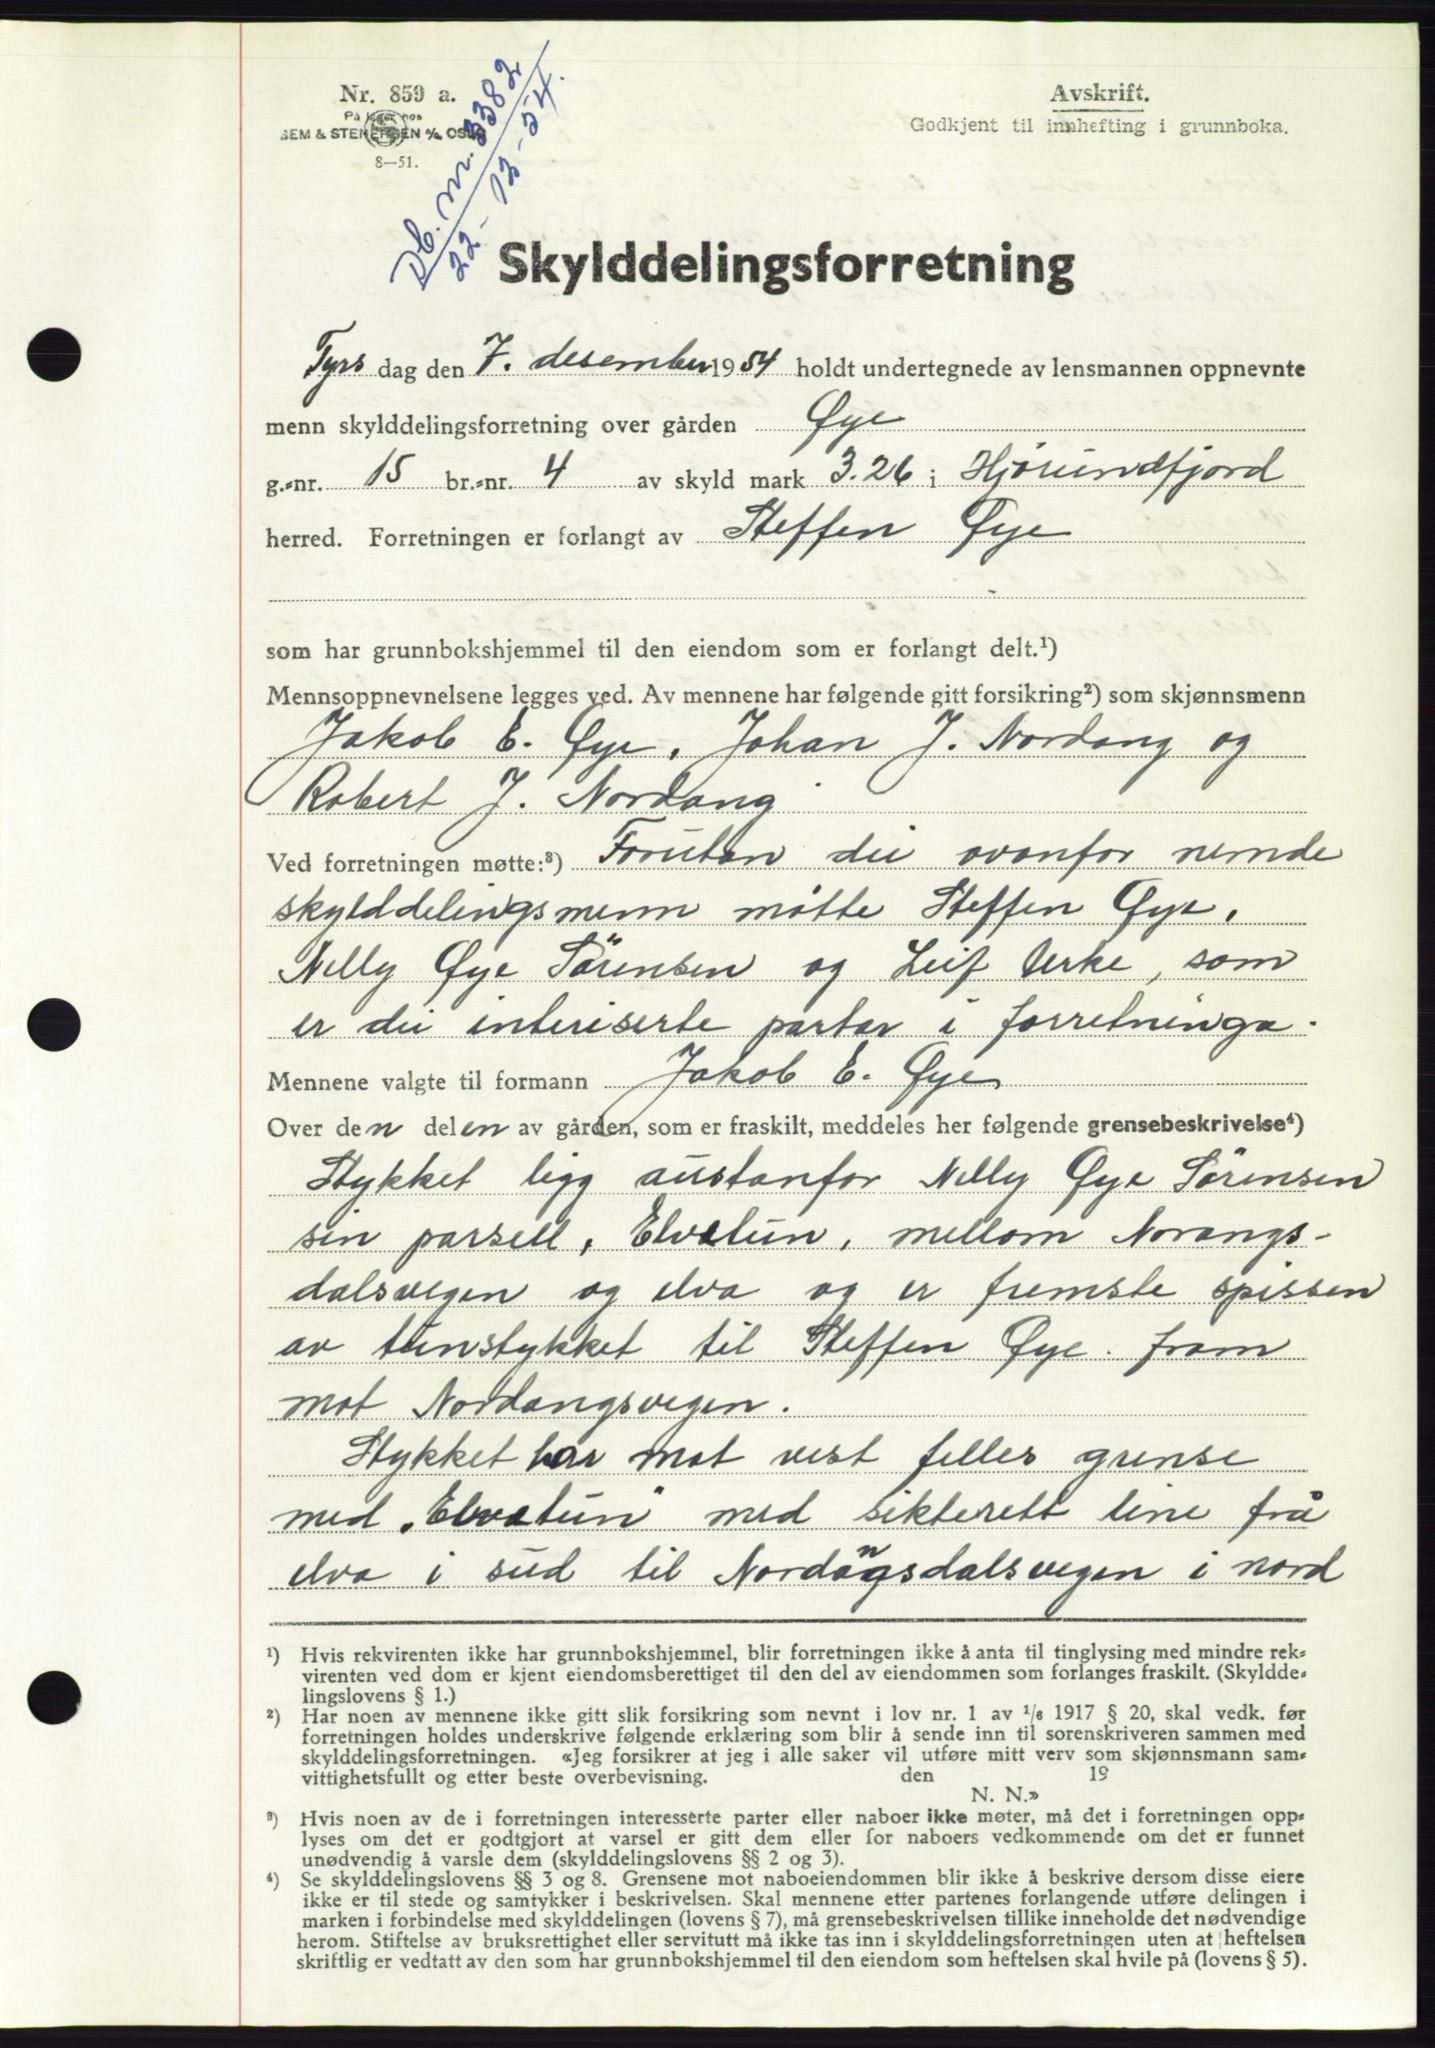 Nr. 859 a.
På lager hos
SEM & STENERSEN A/S OSLO
8—51.
Db. nr. 3382
22-12-54.
Avskrift.
Godkjent til innhefting i grunnboka.
Skylddelingsforretning
Tyrs dag den 7. desember 1954 holdt undertegnede av lensmannen oppnevnte
menn skylddelingsforretning over gården Øye
g.-nr. 15 br.-nr. 4 av skyld mark 3.26 i Hjørundfjord
herred. Forretningen er forlangt av Steffen Øye
som har grunnbokshjemmel til den eiendom som er forlangt delt.¹)
Mennsoppnevnelsene legges ved. Av mennene har følgende gitt forsikring²) som skjønnsmenn
Jakob E. Øye, Johan J. Nordang og
Robert J. Nordang
Ved forretningen møtte:³) Forutan dei ovanfor nemde
skylddelingsmenn møtte Steffen Øye,
Nelly Øye Sörensen og Leif Urke, som
er dei interiserte partar i forretninga.
Mennene valgte til formann Jakob E. Øye
Over den delen av gården, som er fraskilt, meddeles her følgende grensebeskrivelse⁴)
Stykket ligg austanfor Nelly Øye Sörensen
sin parsell, Elvetun, mellom Norangs-
dalsvegen og elva og er fremste spissen
av tunstykket til Steffen Øye fram
mot Nordangsvegen.
Stykket har mot vest felles grense
med "Elvetun" med sikterett line frå
elva i sud til Nordangsdalsvegen i nord
¹) Hvis rekvirenten ikke har grunnbokshjemmel, blir forretningen ikke å anta til tinglysing med mindre rek-
virenten ved dom er kjent eiendomsberettiget til den del av eiendommen som forlanges fraskilt. (Skyldde-
lingslovens § 1.)
²) Har noen av mennene ikke gitt slik forsikring som nevnt i lov nr. 1 av ¹/₆ 1917 § 20, skal vedk. før
forretningen holdes underskrive følgende erklæring som blir å sende inn til sorenskriveren sammen med
skylddelingsforretningen. «Jeg forsikrer at jeg i alle saker vil utføre mitt verv som skjønnsmann sam-
vittighetsfullt og etter beste overbevisning. den 19
N. N.»
³) Hvis noen av de i forretningen interesserte parter eller naboer ikke møter, må det i forretningen opp-
lyses om det er godtgjort at varsel er gitt dem eller for naboers vedkommende om det er funnet
unødvendig å varsle dem (skylddelingslovens §§ 2 og 3).
⁴) Se skylddelingslovens §§ 3 og 8. Grensene mot naboeiendommen blir ikke å beskrive dersom disse eiere
ikke er til stede og samtykker i beskrivelsen. Skal mennene etter partenes forlangende utføre delingen i
marken i forbindelse med skylddelingen (lovens § 7), må grensebeskrivelsen tillike inneholde det nødvendige
herom. Stiftelse av bruksrettighet eller servitutt må ikke tas inn i skylddelingsforretningen uten at heftelsen
skriftlig er vedtatt av den som har grunnbokshjemmel til den eiendom som heftelsen skal hvile på (lovens § 5).